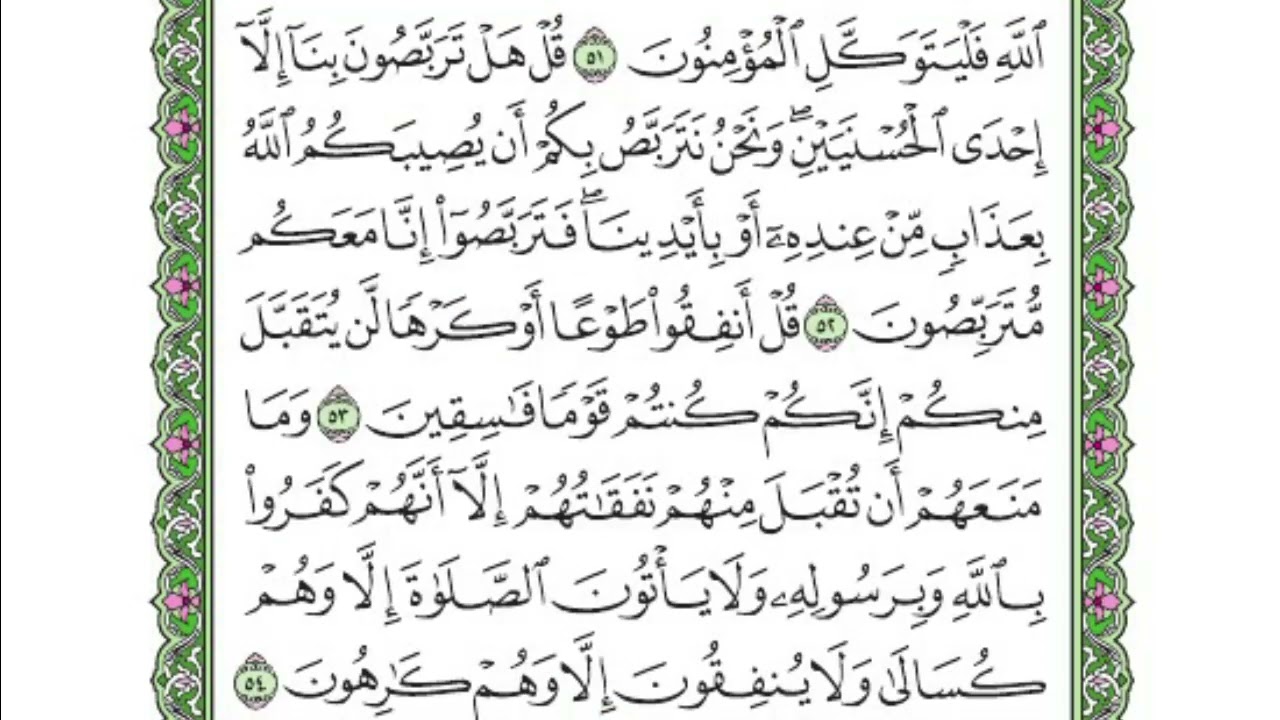 ٱللَّهِ فَلْيَتَوَكَّلِ ٱلْمُؤْمِنُونَ ٥١ قُلْ هَلْ تَرَبَّصُونَ بِنَآ إِلَّآ
إِحْدَى ٱلْحُسْنَيَيْنِۖ وَنَحْنُ نَتَرَبَّصُ بِكُمْ أَن يُصِيبَكُمُ ٱللَّهُ
بِعَذَابٍ مِّنْ عِندِهِۦٓ أَوْ بِأَيْدِينَاۖ فَتَرَبَّصُوٓا۟ إِنَّا مَعَكُم
مُّتَرَبِّصُونَ ٥٢ قُلْ أَنفِقُوا۟ طَوْعًا أَوْ كَرْهًا لَّن يُتَقَبَّلَ
مِنكُمْ إِنَّكُمْ كُنتُمْ قَوْمًا فَـٰسِقِينَ ٥٣ وَمَا
مَنَعَهُمْ أَن تُقْبَلَ مِنْهُمْ نَفَقَـٰتُهُمْ إِلَّآ أَنَّهُمْ كَفَرُوا۟
بِٱللَّهِ وَبِرَسُولِهِۦ وَلَا يَأْتُونَ ٱلصَّلَوٰةَ إِلَّا وَهُمْ
كُسَالَىٰ وَلَا يُنفِقُونَ إِلَّا وَهُمْ كَـٰرِهُونَ ٥٤